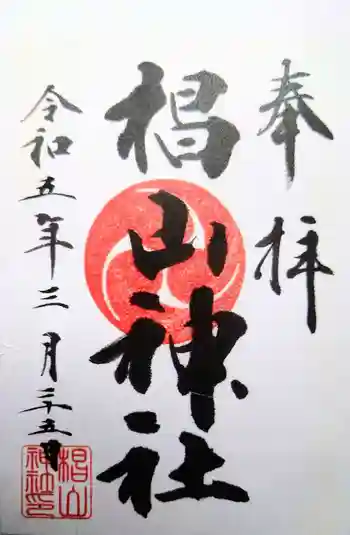 奉拝
椙山神社
令和五年三月三十五日
椙山
神社印